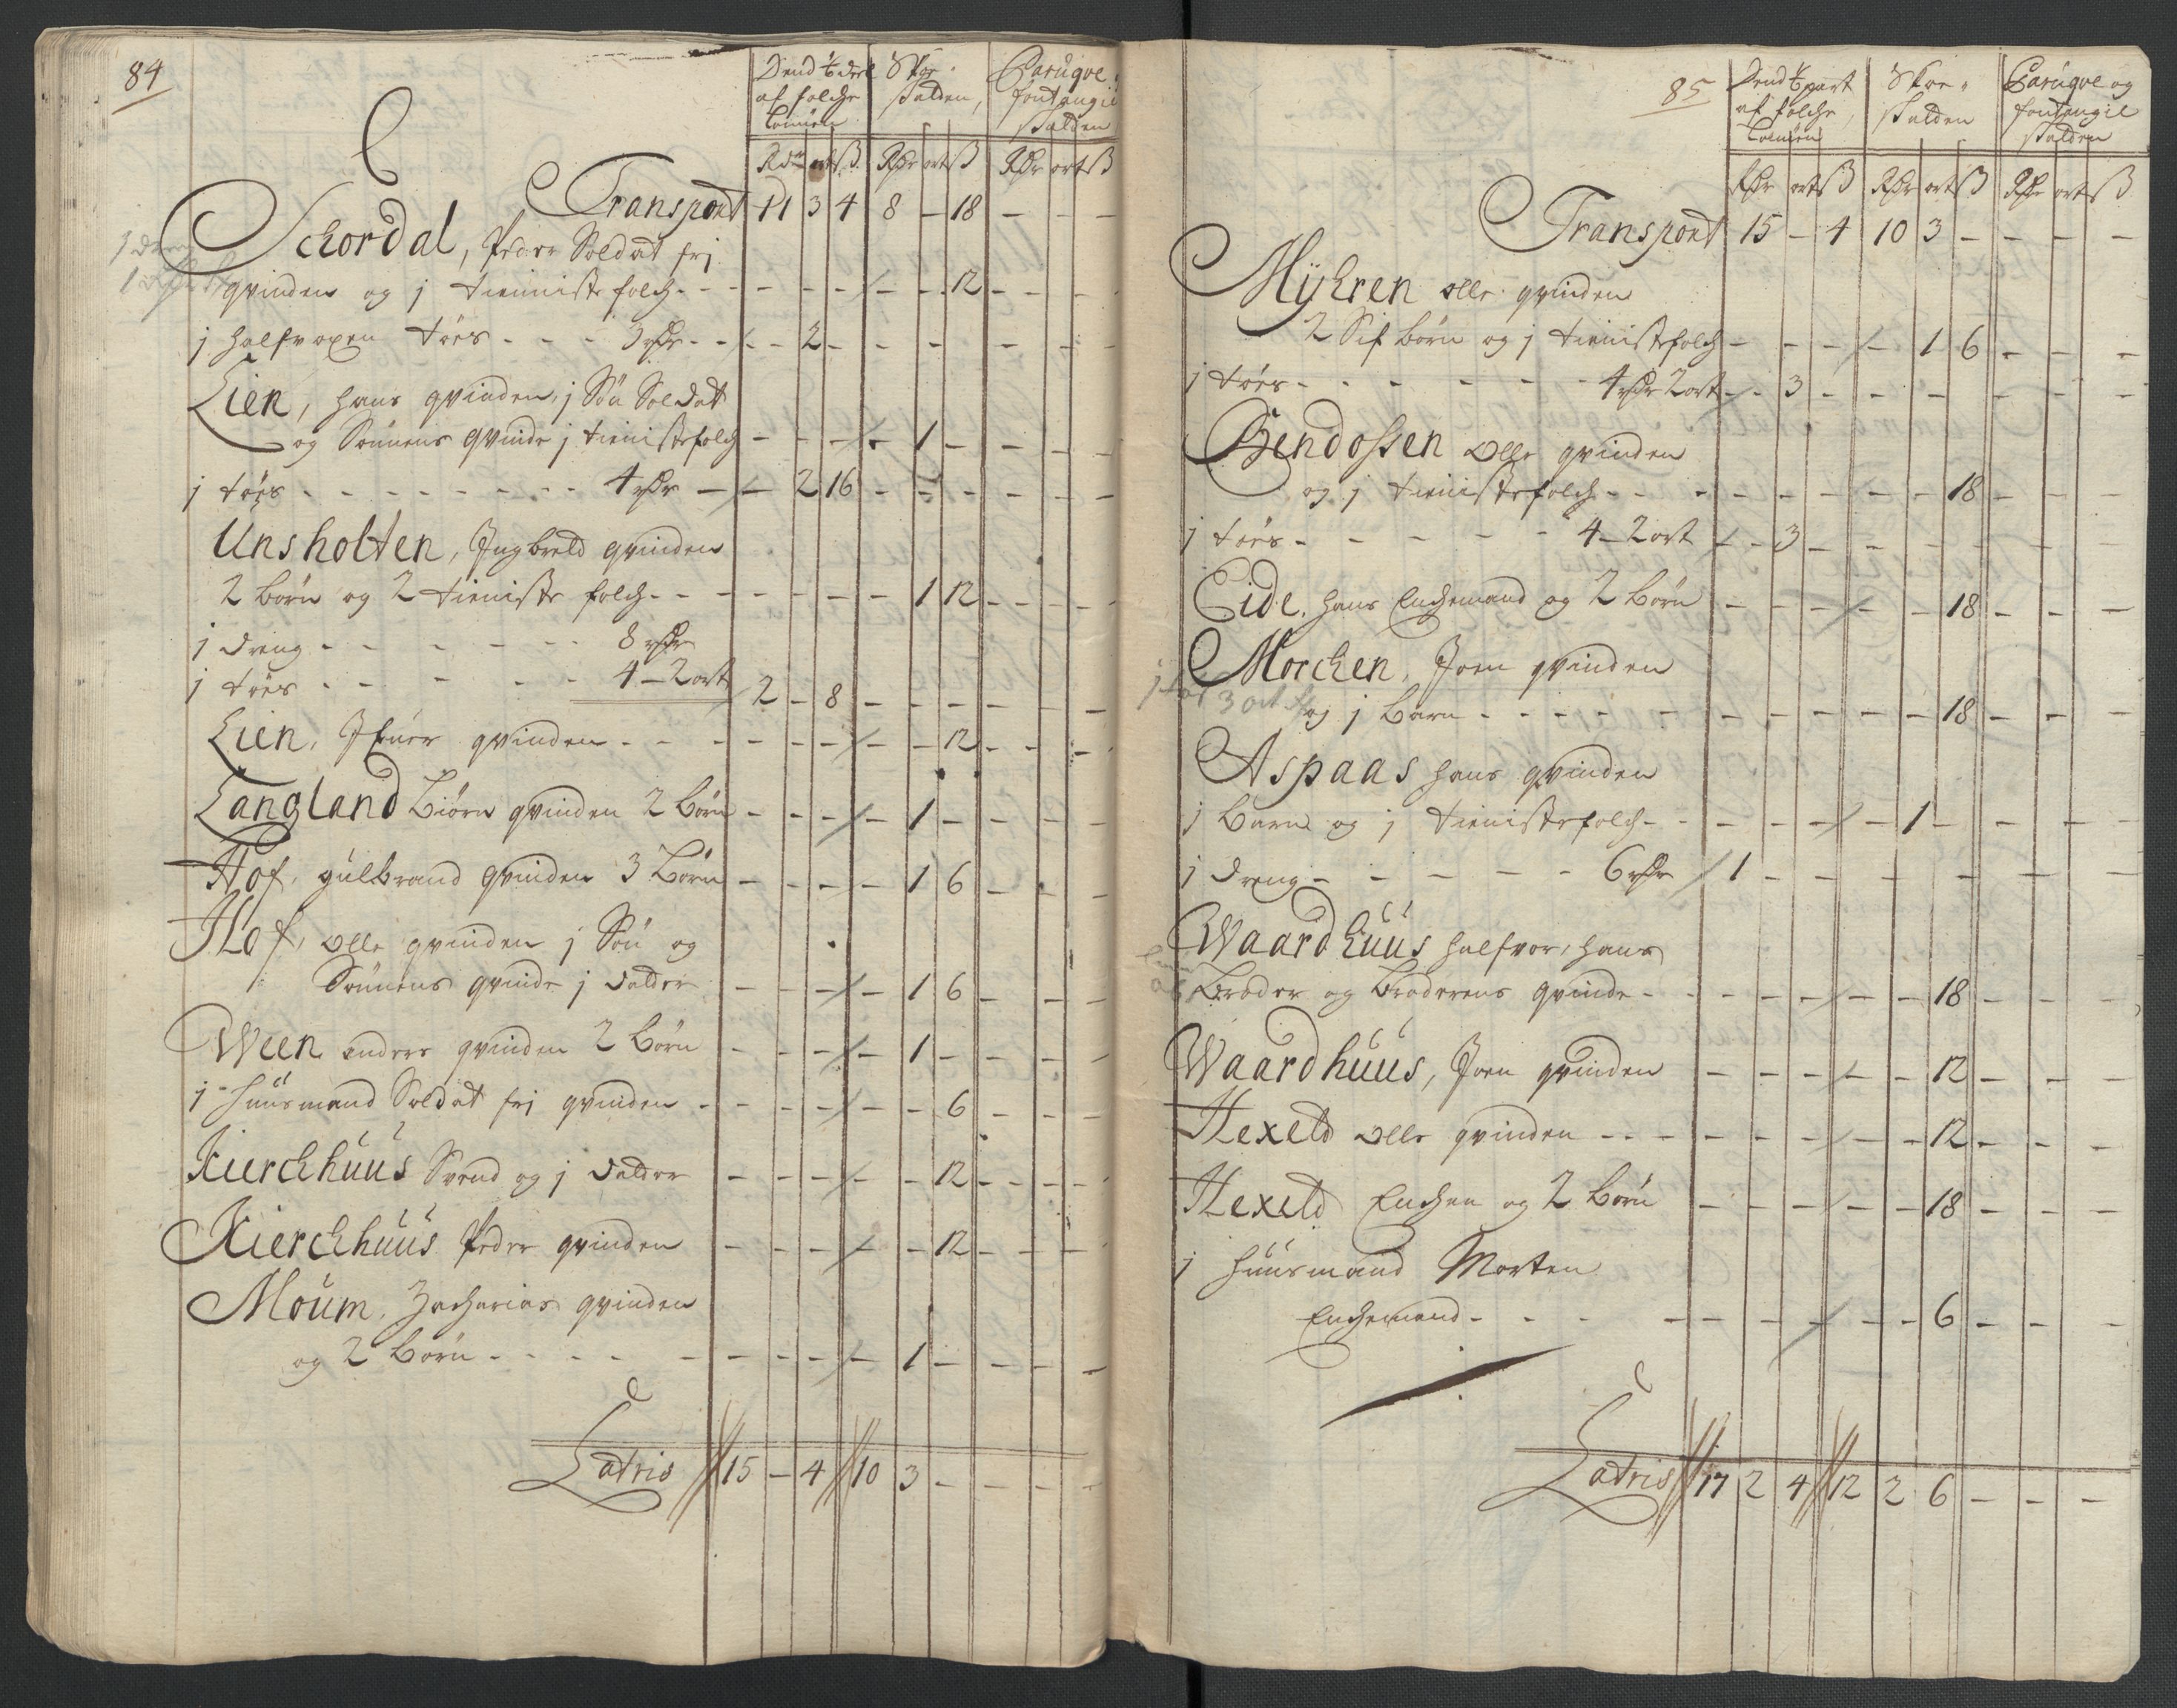 84
Dend 1/6 deel Skoe- Paruqve
af folche skatden, fontangie
Lønnen skatden
Rdr ort ß Rdr ort ß Rdr ort ß
Transport 11 3 4 8 - 18 - - -
Schordal, Peder Soldat fri
qvinden og j tieniste folch - - - - - 12 - - -
j halfvoxen tøes - - - 3 rdr - - 2 - - - - - - -
Lien, hans qvinden, j Søn Soldat
og Sønnens qvinde j tienistefolch - - - - 1 - - - -
j tøes - - - - - - - 4 rdr - - 2 16 - - - - - -
Unsholten, Ingbreld qvinden
2 børn og 2 tieniste folch - - - - - 1 12 - - -
j dreng - - - - - 8 rdr
j tøes - - - - - 4 - 2 ort 2 - 8 - - - - - -
Lien, Ifuer qvinden - - - - - - - 12 - - -
Langland Biørn qvinden 2 børn - - - - 1 - - - -
Hof, gulbrand qvinden 3 børn - - - - 1 6 - - -
Hof, olle qvinden j Søn og
Sønnens qvinde j datder - - - - 1 6 - - -
Ween anders qvinden 2 børn - - - - 1 - - - -
j huusmand Soldat fri qvinden - - - - - 6 - - -
Kierchhuus Svend og j datder - - - - - 12 - - -
Kierchhuus Peder qvinden - - - - - 12 - - -
Moum, Zacharias qvinden
og 2 børn - - - - - - - - 1 - - - -
Latris 15 - 4 10 3 - - - -
85
Dend 1/6 part Skoe- Paruqve og
af folche skatden fontangie
Lønnen skatden
Rdr ort ß Rdr ort ß Rdr ort ß
Transport 15 - 4 10 3 - - - -
Myhren olle qvinden
2 Sif børn og j tienistefolch - - - - 1 6 - - -
j tøes - - - - - - 4 rdr 2 ort - 3 - - - - - - -
Bendossen Olle qvinden
og j tienistefolch - - - - - - - 18 - - -
j tøes - - - - - 4 - 2 ort - 3 - - - - - - -
Eide, hans Enchemand og 2 børn - - - - - 18 - - -
Morchen, Joen qvinden
og j barn - - - - - - - - - 18 - - -
Aspaas hans qvinden
j barn og j tienistefolch - - - - - 1 - - - -
j dreng - - - - - 6 rdr 1 - - - - - - - -
Waardhuus halfvor, hans
Broder og Broderens qvinde - - - - - - 18 - - -
Waardhuus, Joen qvinden - - - - - 12 - - -
Hexeld olle qvinden - - - - - - - 12 - - -
Hexeld Enchen og 2 børn - - - - - 18 - - -
j huusmand Morten
Enchemand - - - - - - - - - 6 - - -
Latris 17 2 4 12 2 6 - - -